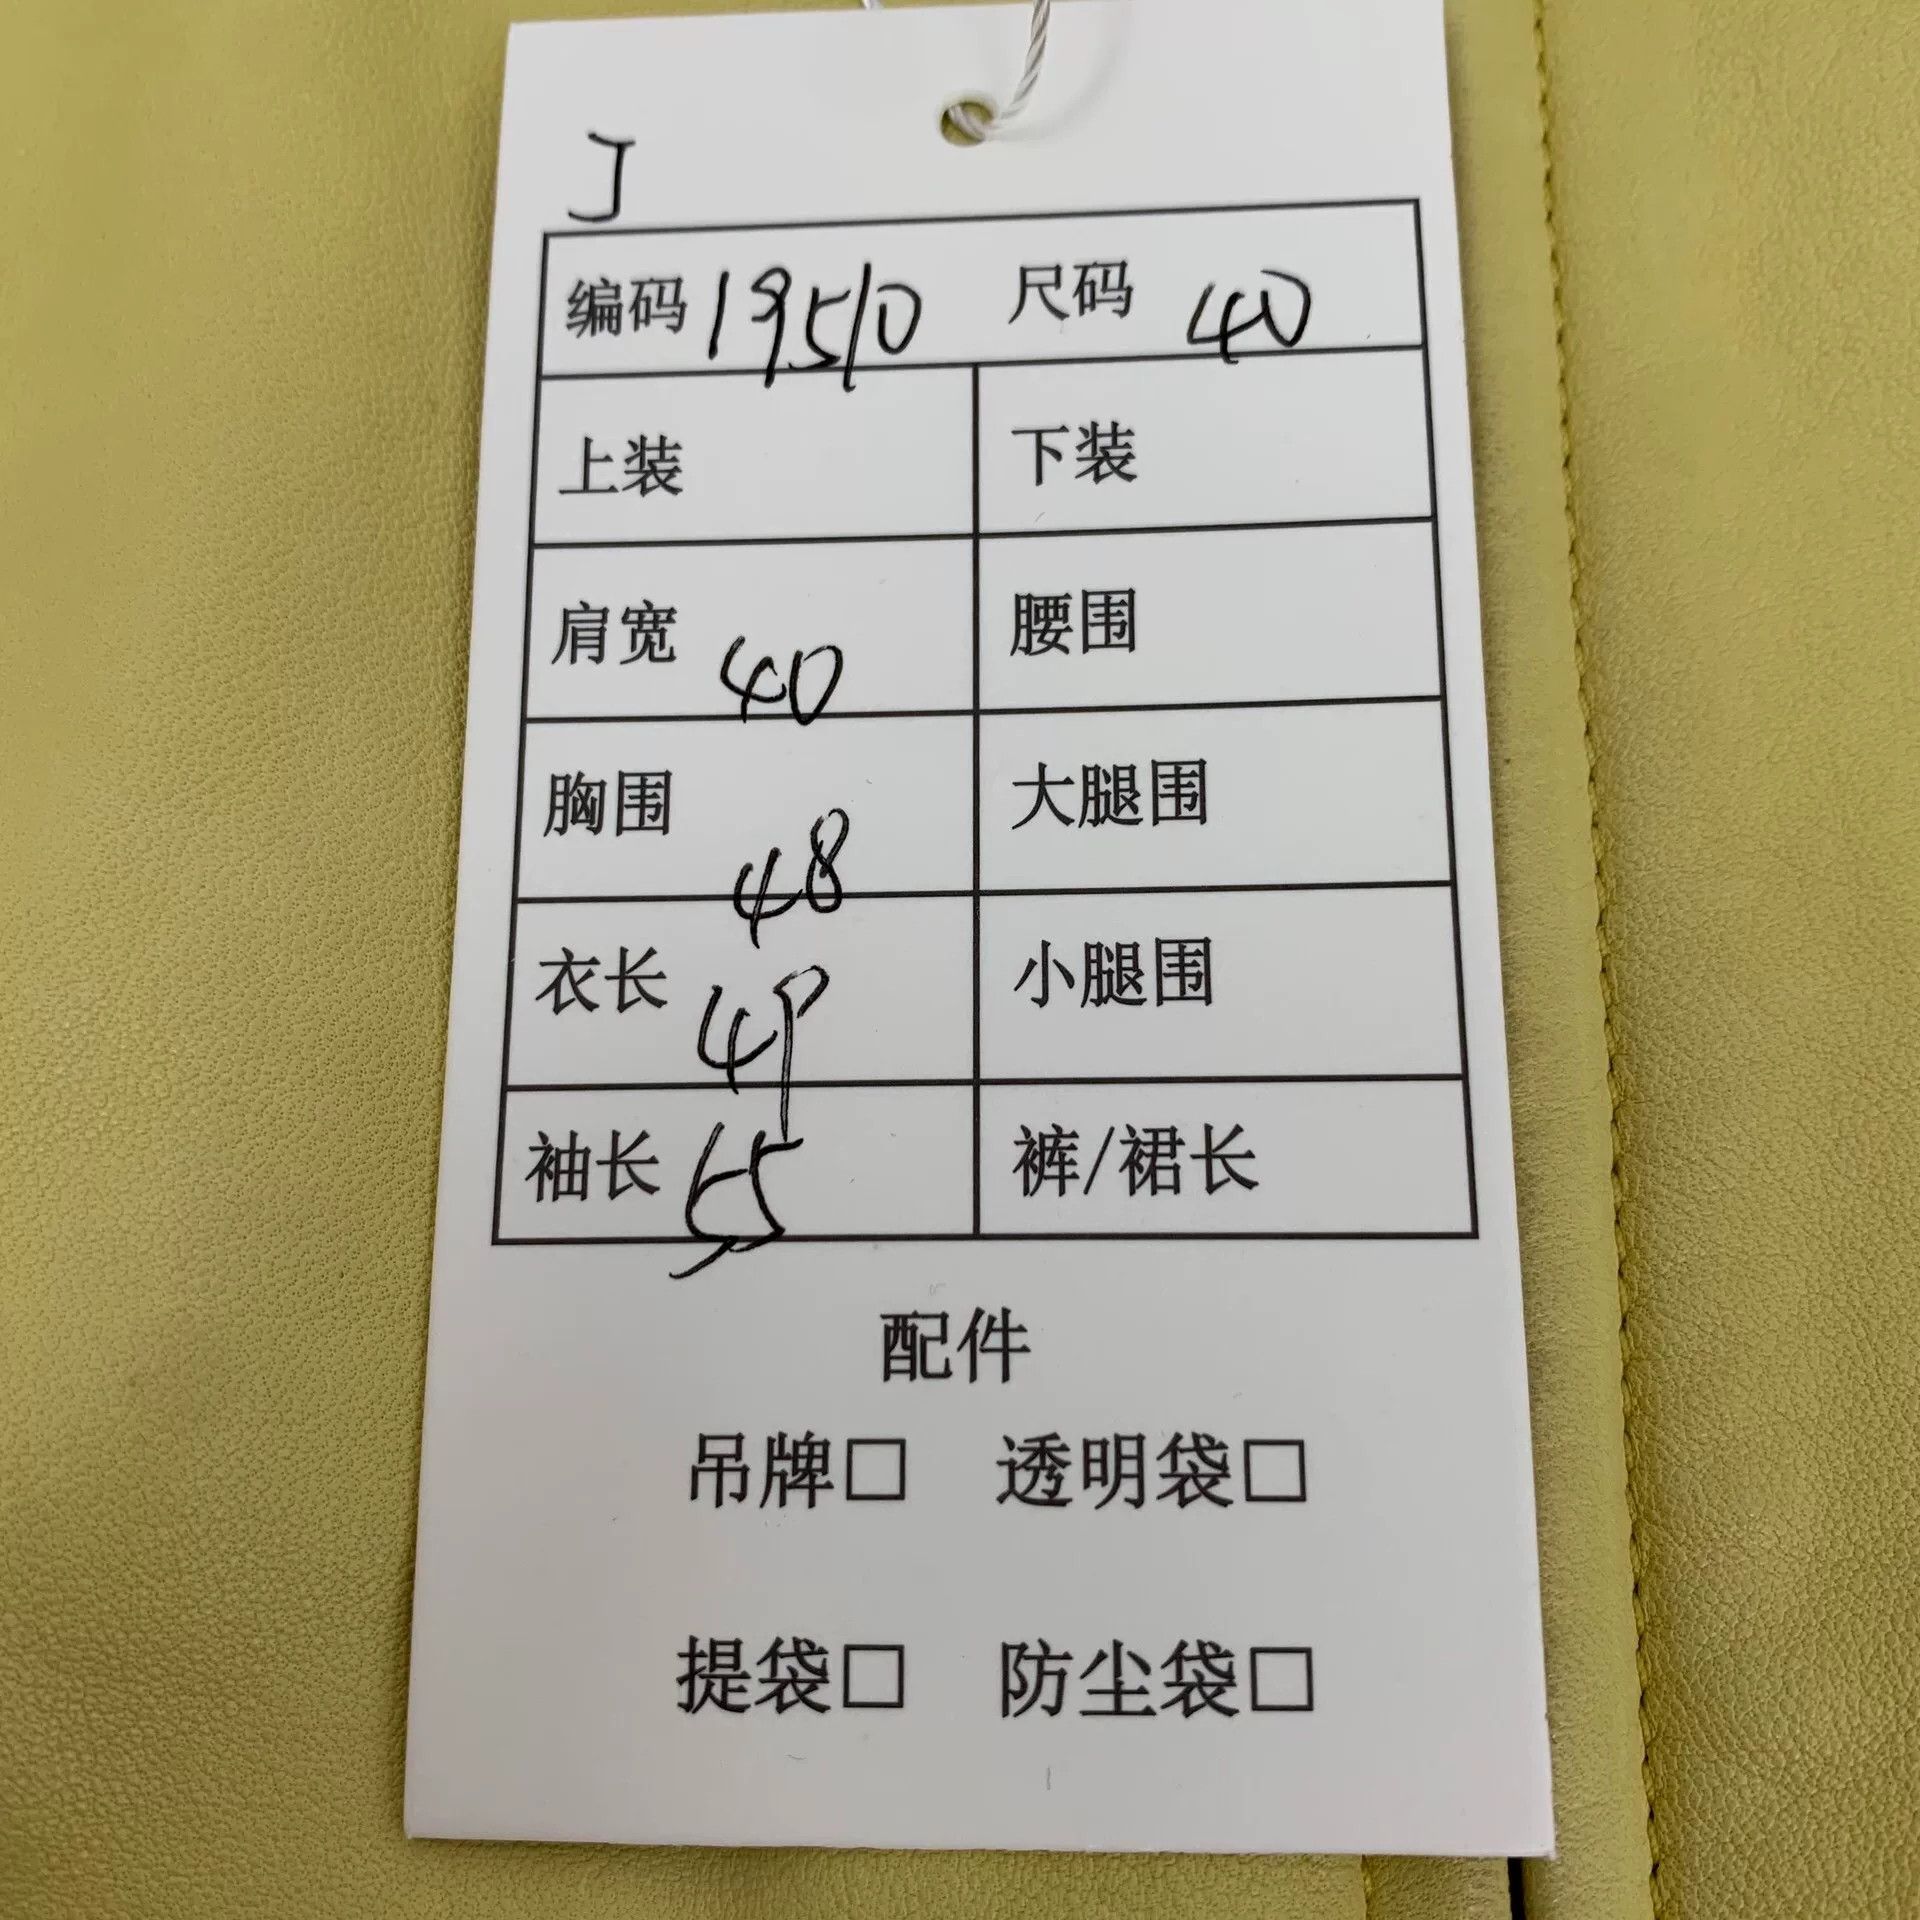 J
编码 19510 尺码 40
上装 下装
肩宽 40 腰围
胸围 48 大腿围
衣长 49 小腿围
袖长 55 裤/裙长
配件
吊牌□ 透明袋□
提袋□ 防尘袋□